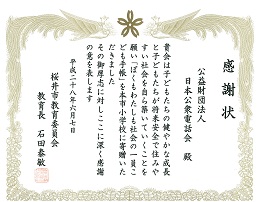 感謝状
公益財団法人
日本公衆電話会 殿
貴会は子どもたちの健やかな成長
と子どもたちが将来安全で住みや
すい社会を自ら築いていくことを
願い「ぼくもわたしも社会の一員こ
ども手帳」を本市小学校に寄贈いた
だきました
その御厚志に対しここに深く感謝
の意を表します
平成二十八年六月七日
桜井市教育委員会
教育長 石田泰敏